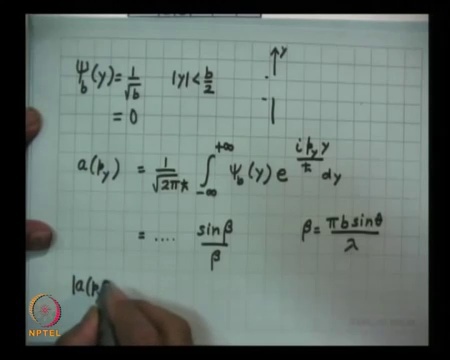 ψ_b(y) = 1/√b   |y| < b/2   y
= 0
a(p_y) = 1/√(2πħ) ∫_{-∞}^{+∞} ψ_b(y) e^{i p_y y/ħ} dy
= .... sin β/β   β = πb sinθ/λ
|a(p
NPTEL